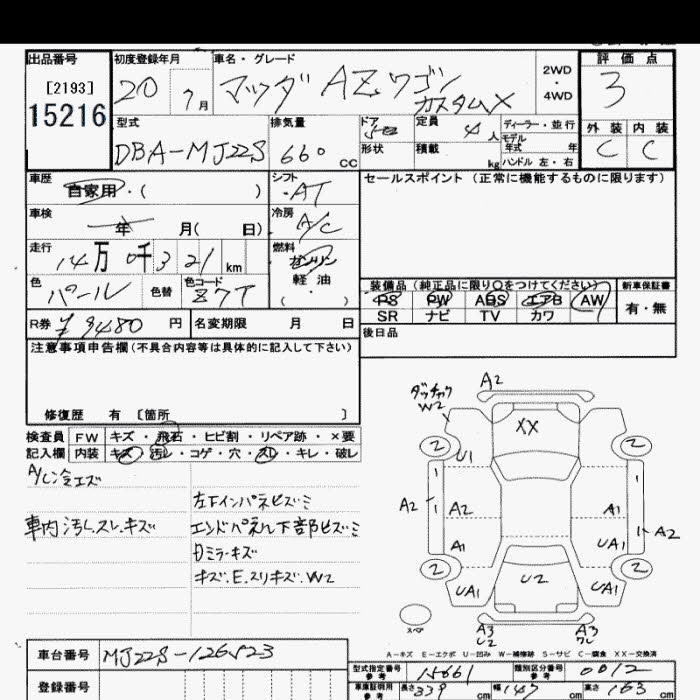 出品番号 初度登録年月 車名・グレード 評価点
[2193]
15216
20 7月 マツダ AZワゴン カスタムX
2WD
4WD
3
型式 排気量 ドア 定員 ディーラー・並行
DBA-MJ22S 660cc 5 4人
モデル年式 年
形状 積載 kg ハンドル 左・右
外装 内装
C C
車歴 自家用・( )
シフト ・AT
セールスポイント (正常に機能するものに限ります)
車検 年 月( 日)
冷房 A/C
走行 14万0千321km
燃料 ガソリン
軽油
・( )
色 パール 色替 色コード Z7T
装備品(純正品に限り○をつけてください) 新車保証書
PS PW ABS エアB AW 有・無
SR ナビ TV カワ
R券 ¥9480円 名変期限 月 日
後日品
注意事項申告欄(不具合内容等は具体的に記入して下さい)
修復歴 有 [箇所 ]
検査員 FW キズ・飛石・ヒビ割・リペア跡・×要
記入欄 内装 キズ・汚レ・コゲ・穴・スレ・キレ・破レ
A/C冷エズ
左下インパネビズミ
車内汚レスレ.キズ エンドパネル下部ビズミ
Dミラ-キズ
キズ.E.スリキズ.W2
A2
W2
XX
2 2
U1
A2 A2 A1 A2
A1 UA1
2 2
UA1 U2 UA1
スペア
A3 A3
U2 ワレ
A-キズ E-エクボ U-凹み W-補修跡 S-サビ C-腐食 XX-交換済
車台番号 MJ22S-126523
型式指定番号 参考 15661 類別区分番号 参考 0012
登録番号
車庫証明用 参考 長さ 339cm 幅 147cm 高さ 163cm